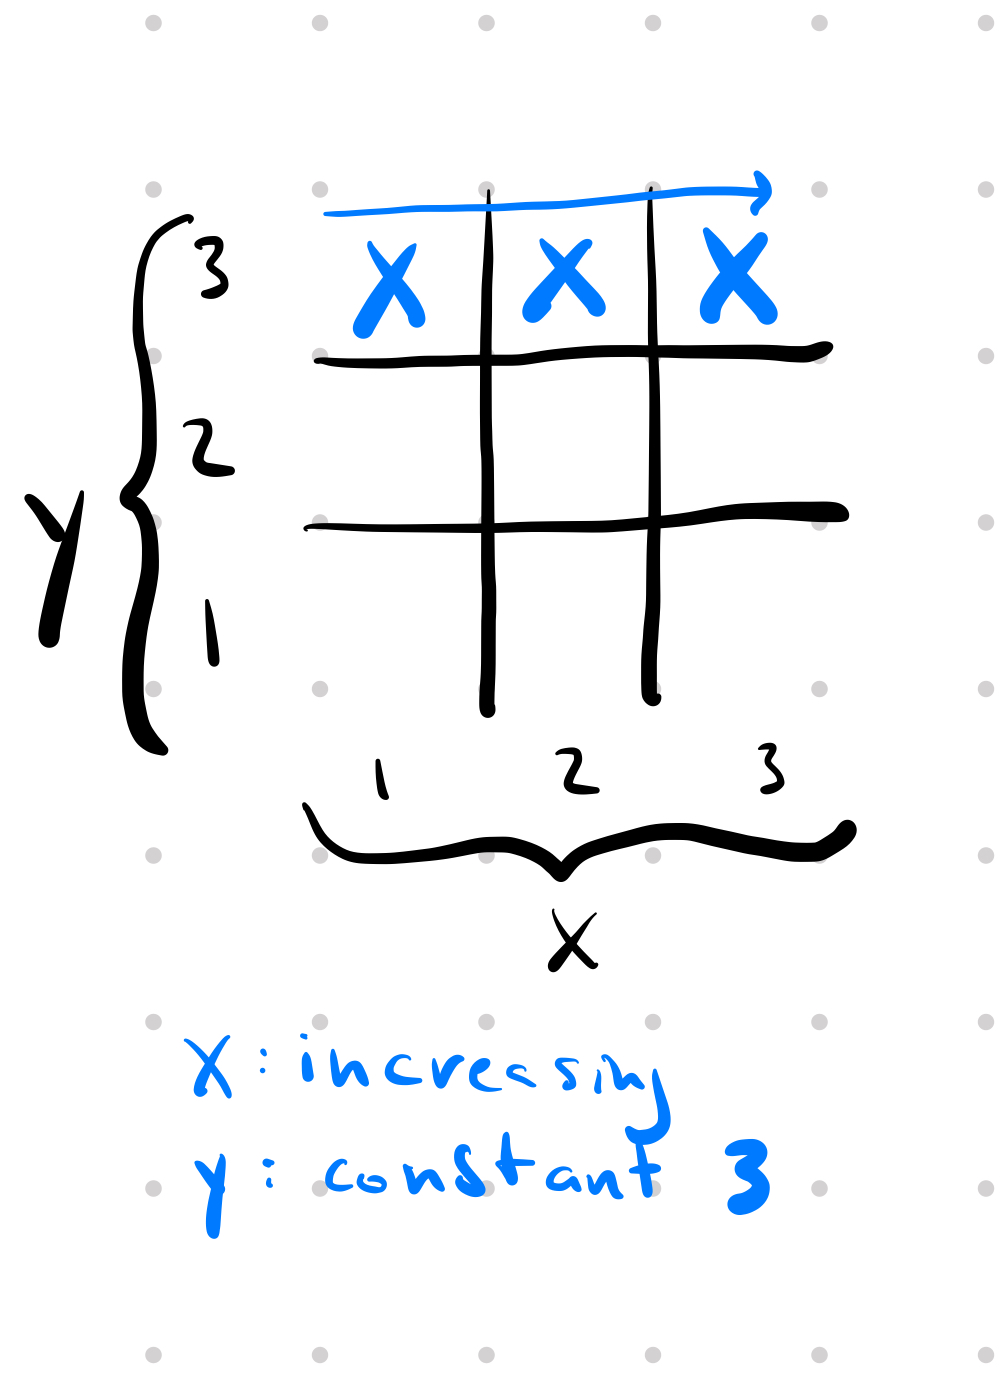 3
X X X
2
y
1
1 2 3
X
X: increasing
y: constant 3